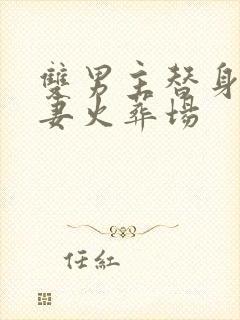 雙男主替身
妻火葬場
任紅